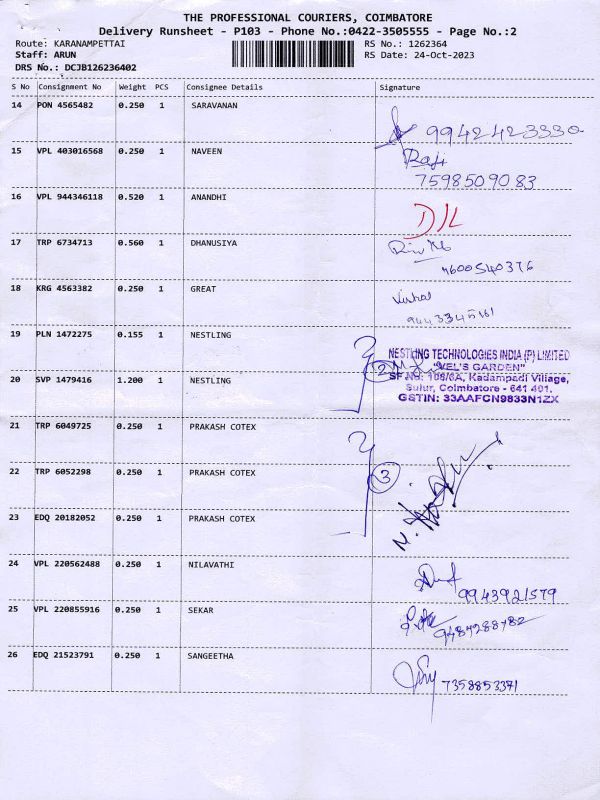 THE PROFESSIONAL COURIERS, COIMBATORE
Delivery Runsheet - P103 - Phone No.:0422-3505555 - Page No.:2
Route: KARANAMPETTAI RS No.: 1262364
Staff: ARUN RS Date: 24-Oct-2023
DRS No.: DCJB126236402
S No Consignment No Weight PCS Consignee Details Signature
14 PON 4565482 0.250 1 SARAVANAN
9942423330
15 VPL 403016568 0.250 1 NAVEEN Raji
7598509083
16 VPL 944346118 0.520 1 ANANDHI D/L
17 TRP 6734713 0.560 1 DHANUSIYA
7600540376
18 KRG 4563382 0.250 1 GREAT Vishal
19 PLN 1472275 0.155 1 NESTLING
NESTLING TECHNOLOGIES INDIA (P) LIMITED
2 "VEL'S GARDEN"
20 SVP 1479416 1.200 1 NESTLING SF.NO: 108/6A, Kadampadi Village,
Sulur, Coimbatore - 641 401.
GSTIN: 33AAFCN9833N1ZX
21 TRP 6049725 0.250 1 PRAKASH COTEX
22 TRP 6052298 0.250 1 PRAKASH COTEX 3
23 EDQ 20182052 0.250 1 PRAKASH COTEX
24 VPL 220562488 0.250 1 NILAVATHI
9943921579
25 VPL 220855916 0.250 1 SEKAR
9487288782
26 EDQ 21523791 0.250 1 SANGEETHA
7358853371